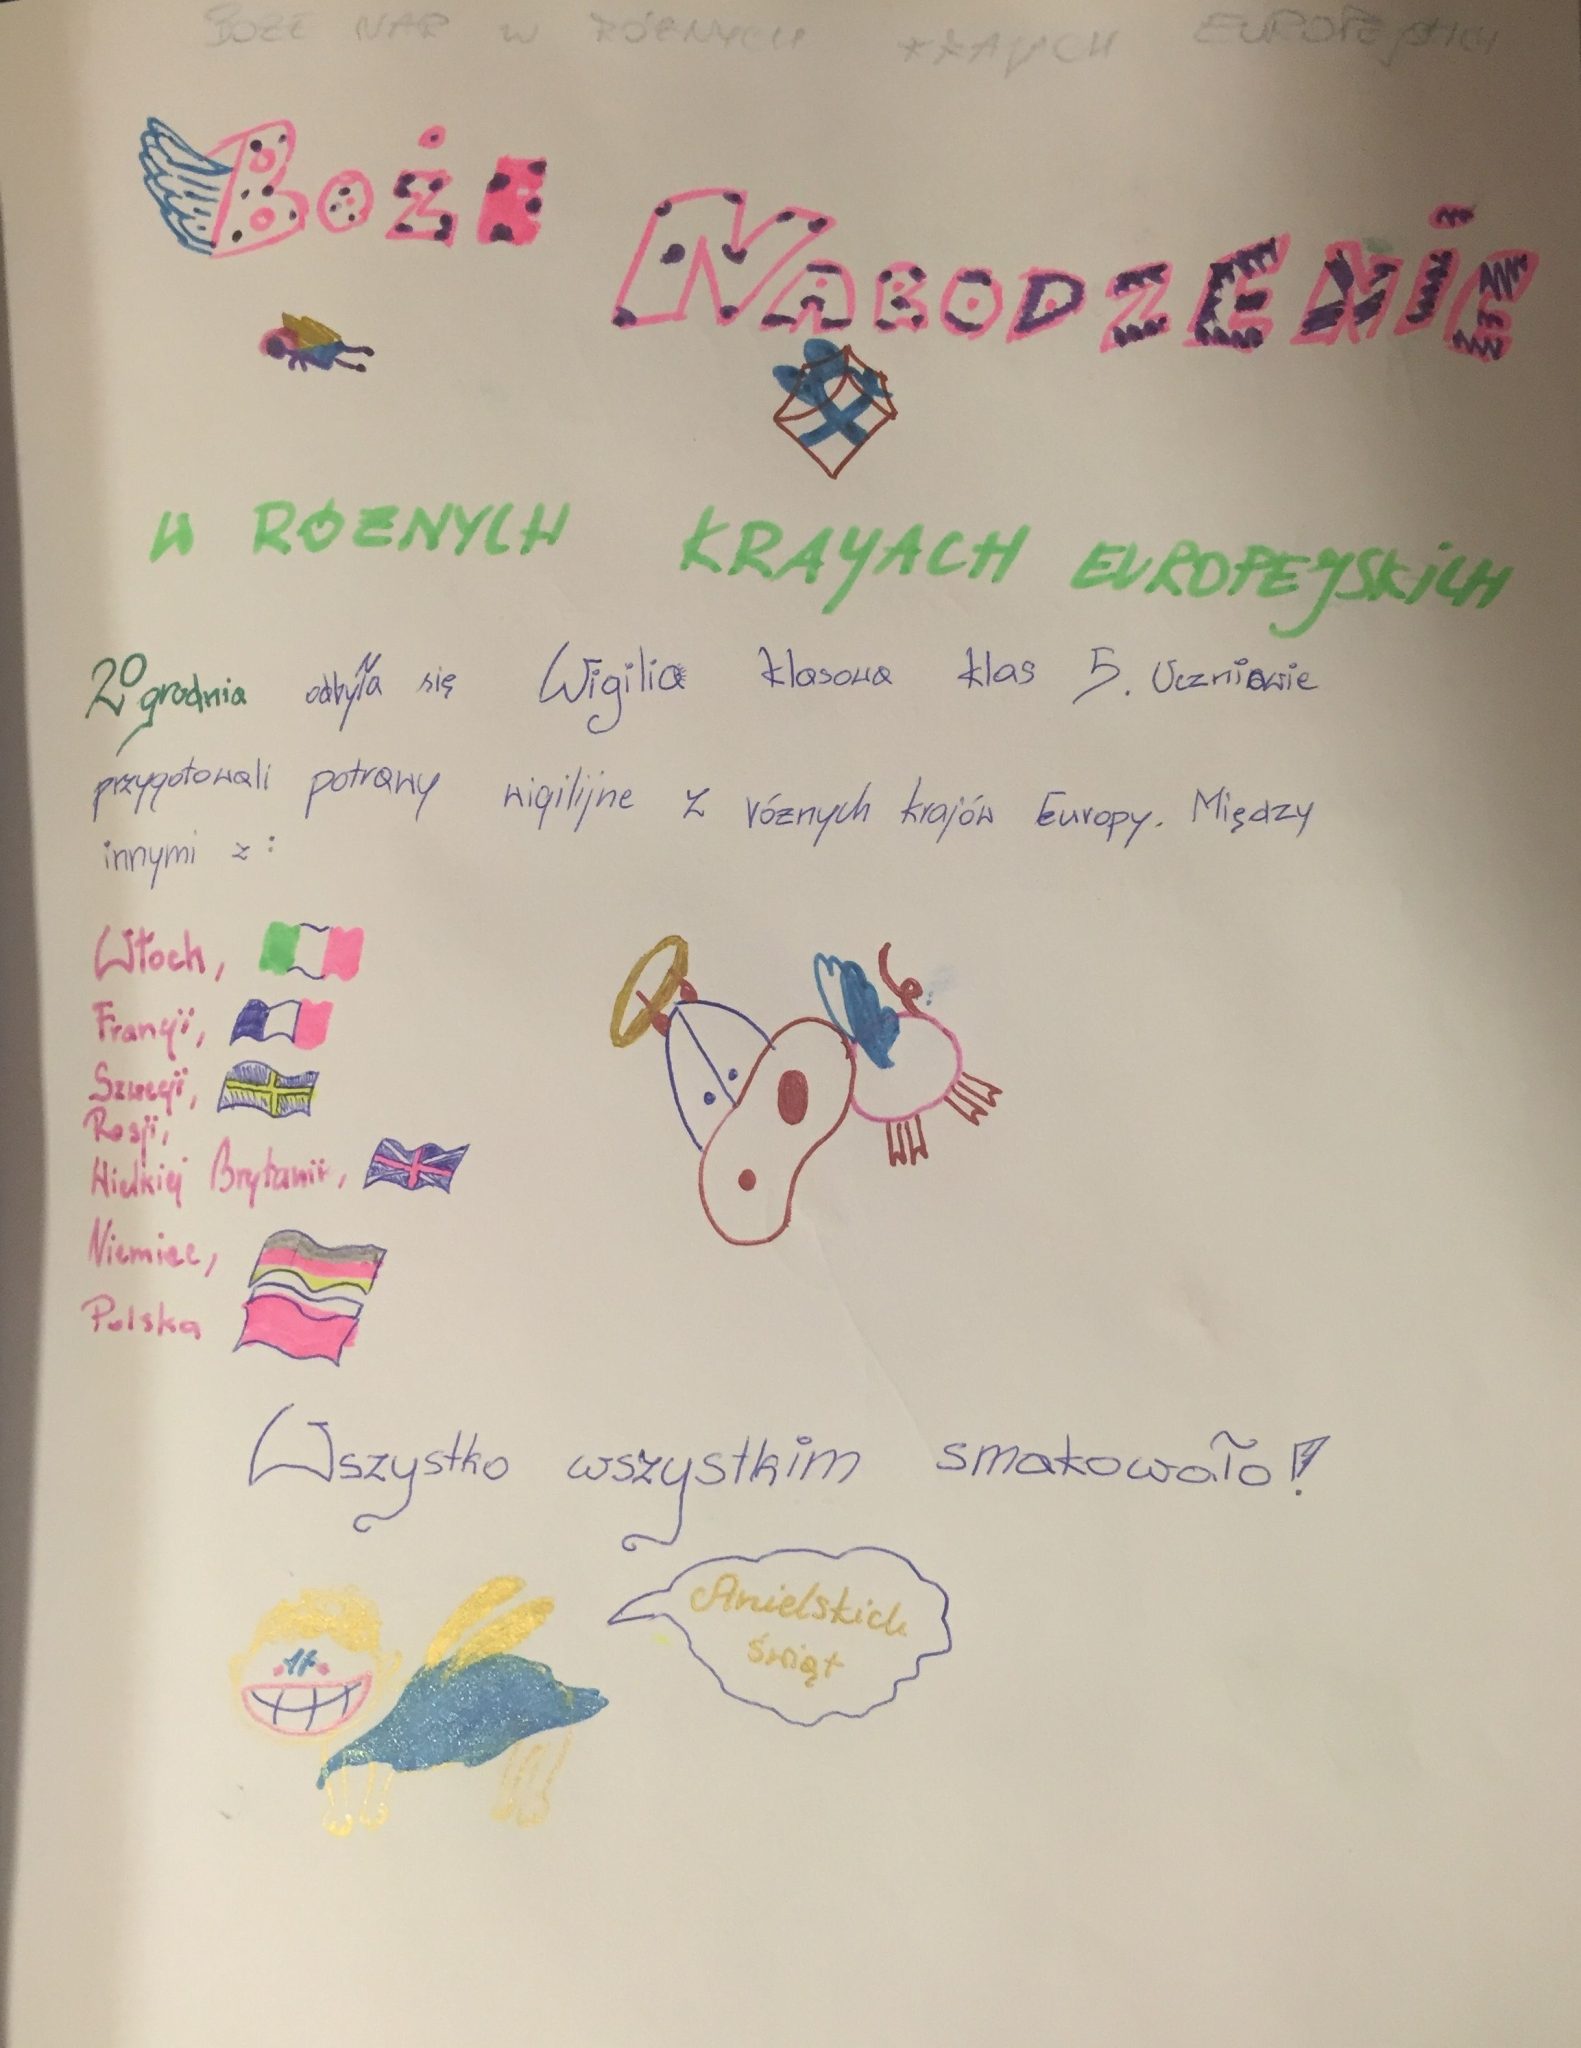 BOŻE NAR W RÓŻNYCH KRAJACH EUROPEJSKICH
BOŻE NARODZENIE
W RÓŻNYCH KRAYACH EUROPEJSKICH
20 grodnia odbyła się Wigilia klasowa klas 5. Uczniowie
przygotowali potrawy wigilijne z róznych krajów Europy. Między
innymi z:
Włoch,
Francji,
Szwecji,
Rosji,
Wielkiej Brytanii,
Niemiec,
Polska
Wszystko wszystkim smakowało!
Anielskich
świąt